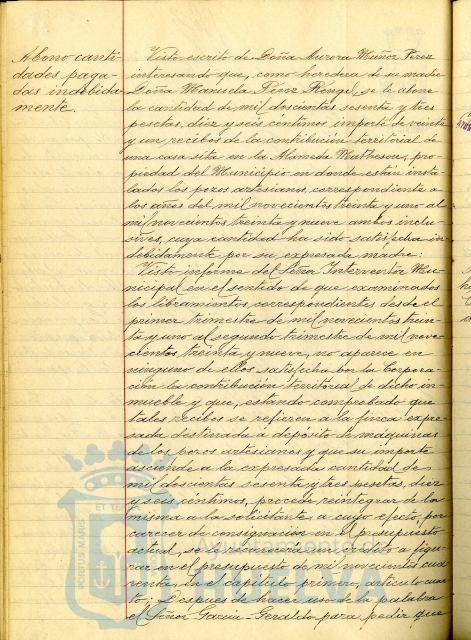 Abono canti-
dades paga-
das indebida-
mente.
Visto escrito de Doña Aurora Muñoz Perez
interesando que, como heredera de su madre
Doña Manuela Pérez Rengel, se le abone
la cantidad de mil doscientas sesenta y tres
pesetas, diez y seis céntimos importe de veinte
y un recibos de la contribución territorial de
una casa sita en la Alameda Mathesson, pro-
piedad del Municipio en donde están insta-
lados los pozos artesianos, correspondiente a
los años del mil novecientos treinta y uno al
mil novecientos treinta y nueve ambos inclu-
sives, cuya cantidad ha sido satisfecha in-
debidamente por su expresada madre:
Visto informe del Señor Interventor Mu-
nicipal en el sentido de que examinados
los libramientos correspondientes desde el
primer trimestre de mil novecientos trein-
ta y uno al segundo trimestre de mil nove-
cientos treinta y nueve, no aparece en
ninguno de ellos satisfecha por la Corpora-
ción la contribución territorial de dicho in-
mueble y que, estando comprobado que
tales recibos se refieren a la finca expre-
sada destinada á depósito de máquinas
de los pozos artesianos y que su importe
asciende a la expresada cantidad de
mil doscientas sesenta y tres pesetas, diez
y seis céntimos, procede reintegrar de la
misma a la solicitante a cuyo efecto, por
carecer de consignación en el presupuesto
actual, se reconocerá un crédito a figu-
rar en el presupuesto de mil novecientos cua-
renta, en el capítulo primero, artículo cuar-
to; Después de hacer uso de la palabra
el Señor García-Geraldo para pedir que
PORTUS MARIS
Ayuntamiento de